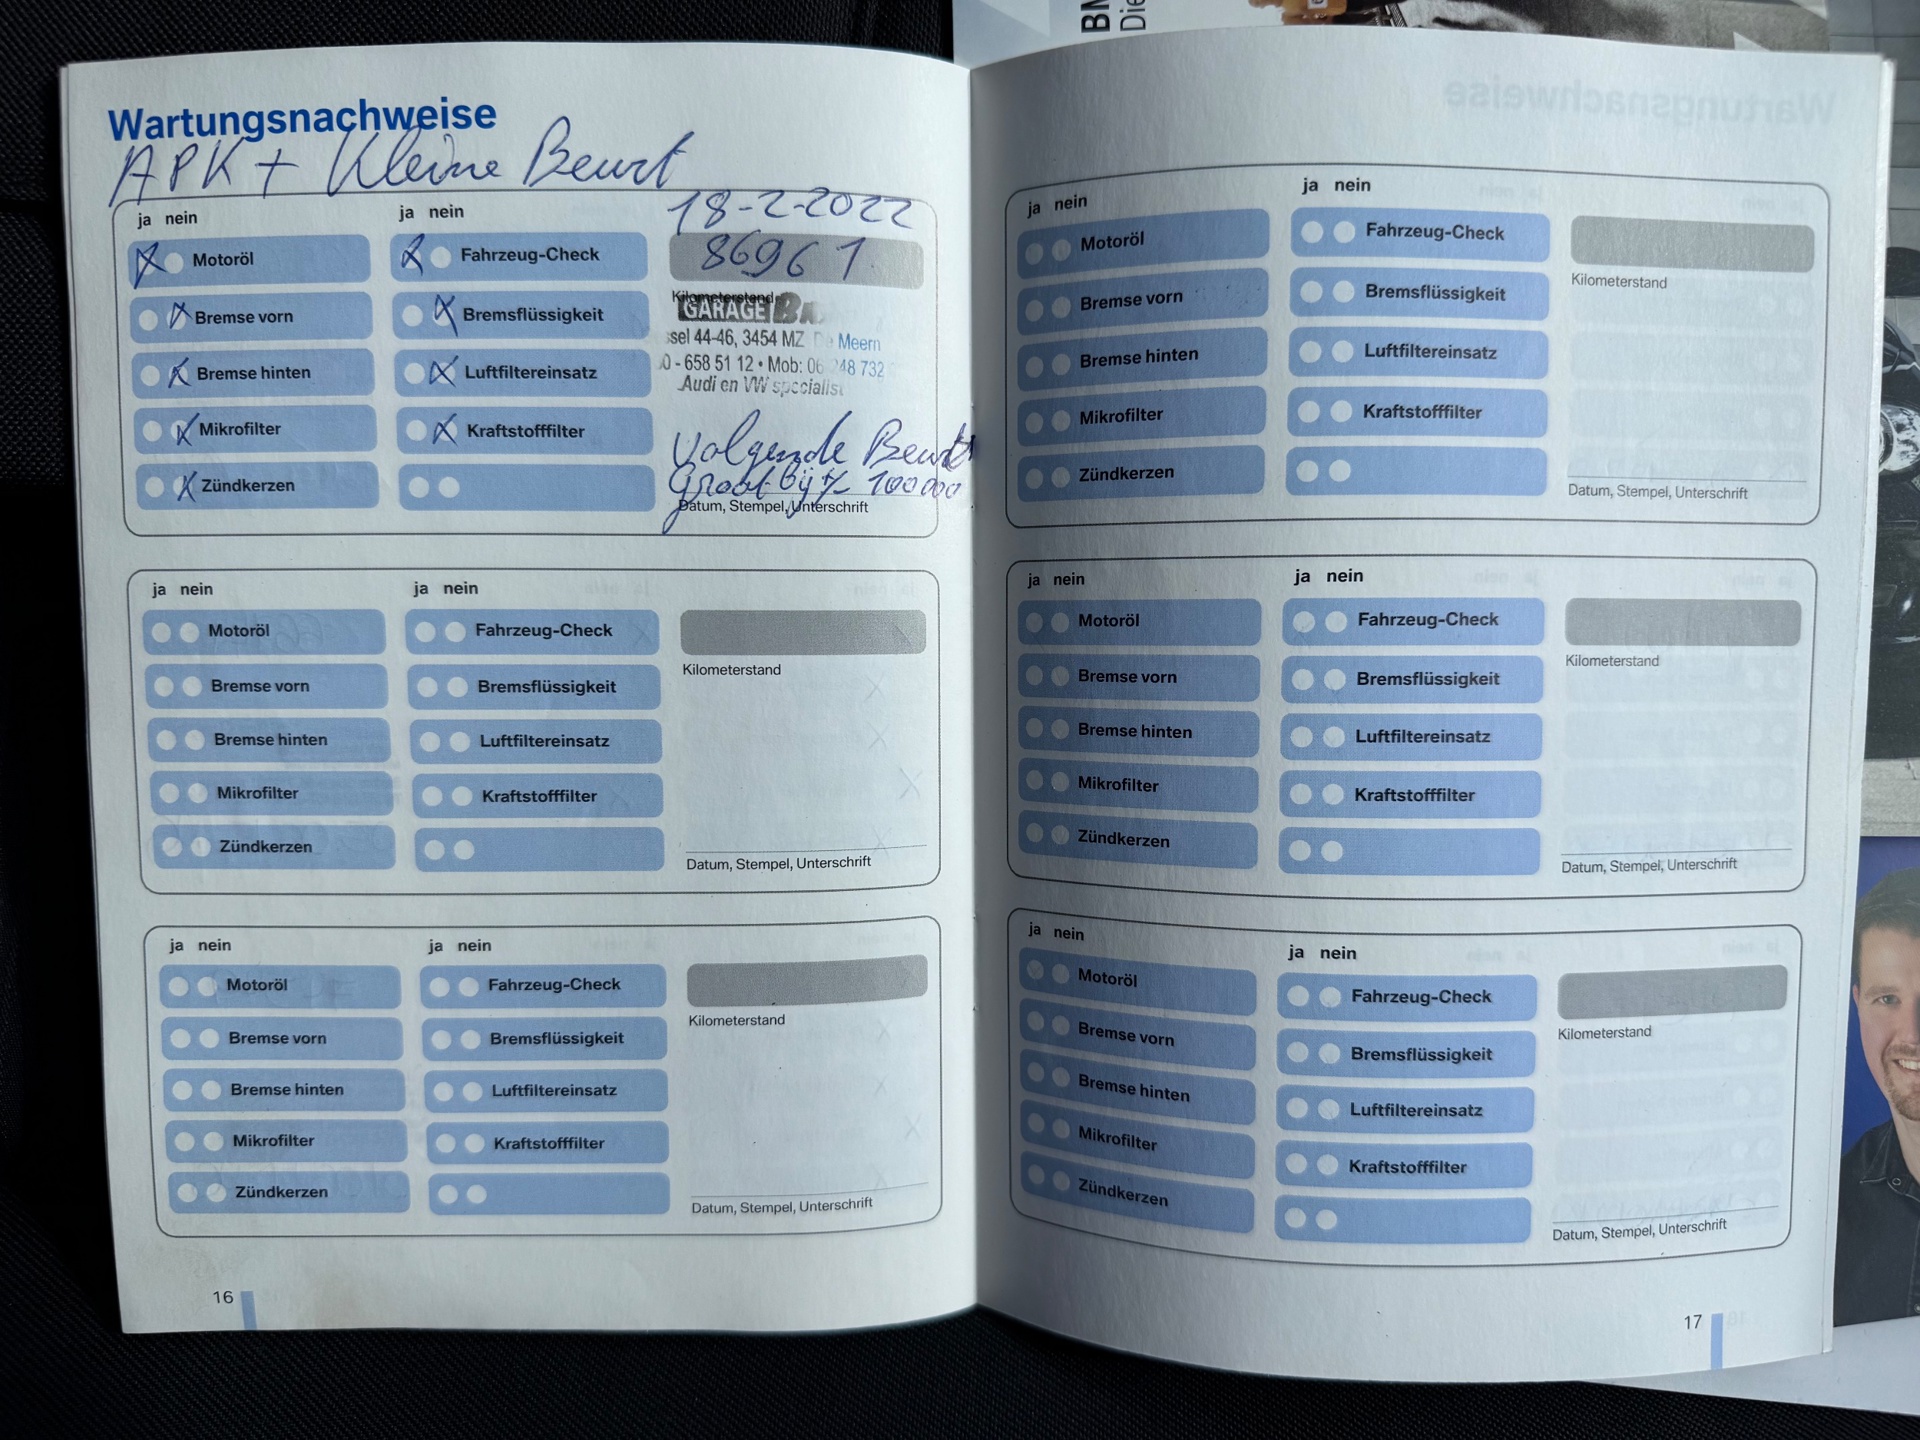 BM
Die
Wartungsnachweise
APK + Kleine Beurt
ja nein
ja nein
18-2-2022
Motoröl
Fahrzeug-Check
86961
Kilometerstand
Bremse vorn
Bremsflüssigkeit
GARAGE
sel 44-46, 3454 MZ De Meern
0 - 658 51 12 • Mob: 06 248 732
Audi en VW specialist
Bremse hinten
Luftfiltereinsatz
Mikrofilter
Kraftstofffilter
Volgende Beurt
Groot bij 100000
Zündkerzen
Datum, Stempel, Unterschrift
ja nein
ja nein
Motoröl
Fahrzeug-Check
Kilometerstand
Bremse vorn
Bremsflüssigkeit
Bremse hinten
Luftfiltereinsatz
Mikrofilter
Kraftstofffilter
Zündkerzen
Datum, Stempel, Unterschrift
ja nein
ja nein
Motoröl
Fahrzeug-Check
Kilometerstand
Bremse vorn
Bremsflüssigkeit
Bremse hinten
Luftfiltereinsatz
Mikrofilter
Kraftstofffilter
Zündkerzen
Datum, Stempel, Unterschrift
16
ja nein
ja nein
Motoröl
Fahrzeug-Check
Kilometerstand
Bremse vorn
Bremsflüssigkeit
Bremse hinten
Luftfiltereinsatz
Mikrofilter
Kraftstofffilter
Zündkerzen
Datum, Stempel, Unterschrift
ja nein
ja nein
Motoröl
Fahrzeug-Check
Kilometerstand
Bremse vorn
Bremsflüssigkeit
Bremse hinten
Luftfiltereinsatz
Mikrofilter
Kraftstofffilter
Zündkerzen
Datum, Stempel, Unterschrift
ja nein
ja nein
Motoröl
Fahrzeug-Check
Kilometerstand
Bremse vorn
Bremsflüssigkeit
Bremse hinten
Luftfiltereinsatz
Mikrofilter
Kraftstofffilter
Zündkerzen
Datum, Stempel, Unterschrift
17